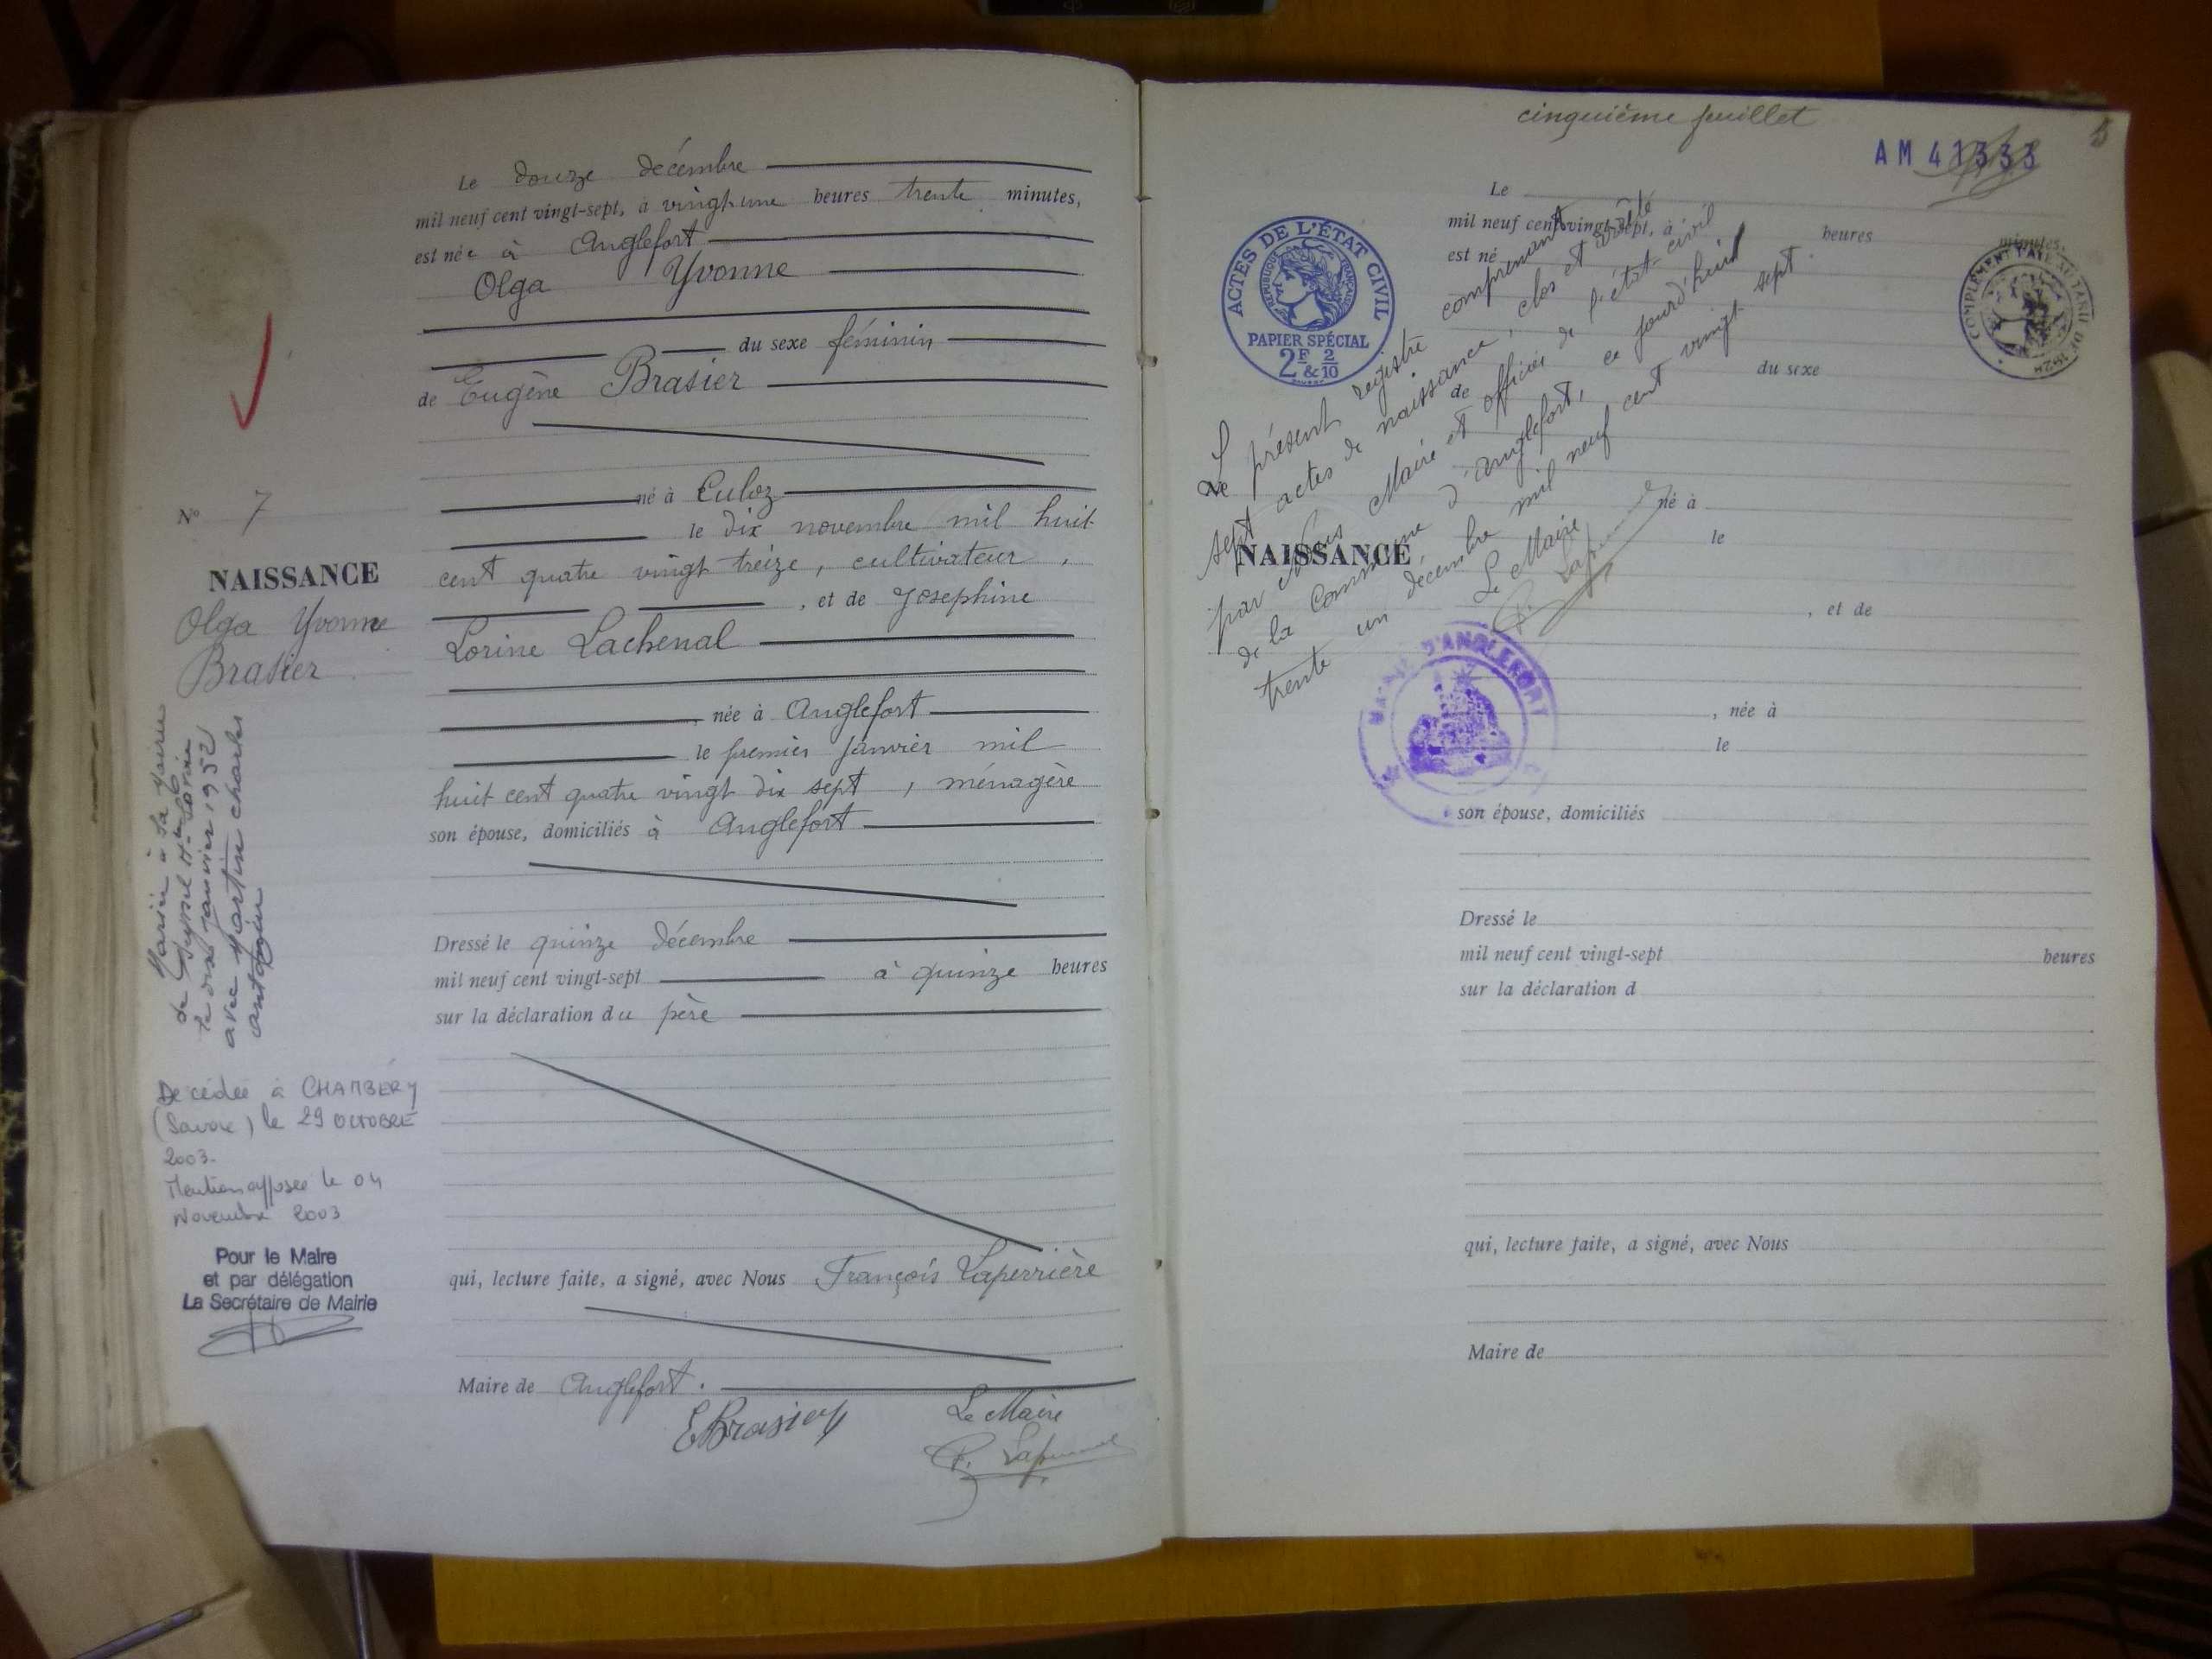 Le douze décembre
mil neuf cent vingt-sept, à vingt une heures trente minutes,
est née à Anglefort
Olga Yvonne
du sexe féminin
de Eugène Brasier
né à Culoz
le dix novembre mil huit
cent quatre vingt treize, cultivateur,
, et de Josephine
Lorine Lachenal
, née à Anglefort
le premier janvier mil
huit cent quatre vingt dix sept, ménagère
son épouse, domiciliés à Anglefort
Dressé le quinze décembre
mil neuf cent vingt-sept à quinze heures
sur la déclaration du père
qui, lecture faite, a signé, avec Nous François Laperrière
Maire de Anglefort.
EBrasier
Le Maire
N° 7
NAISSANCE
Olga Yvonne
Brasier
Mariée à la Mairie
de Seyssel Hte Savoie
le dix janvier 1952
avec Martin charles
Decédée à CHAMBÉRY
(Savoie) le 29 OCTOBRE
2003.
Mention apposée le 04
Novembre 2003
Pour le Maire
et par délégation
La Secrétaire de Mairie
cinquième feuillet
5
AM 41333
ACTES DE L'ÉTAT CIVIL
RÉPUBLIQUE FRANÇAISE
PAPIER SPÉCIAL
2F & 2/10
COMPLÉMENT PAYÉ AU TARIF DE
Le présent registre comprenant
sept actes de naissance, clos et arrêté
par Nous Maire et officier de l'état-civil
de la Commune d'Anglefort, ce jourd'hui
trente un décembre mil neuf cent vingt sept.
Le Maire
MAIRIE D'ANGLEFORT
Le
mil neuf cent vingt-sept, à heures minutes,
est né
du sexe
de
N°
NAISSANCE
né à
le
, et de
, née à
le
son épouse, domiciliés
Dressé le
mil neuf cent vingt-sept heures
sur la déclaration d
qui, lecture faite, a signé, avec Nous
Maire de